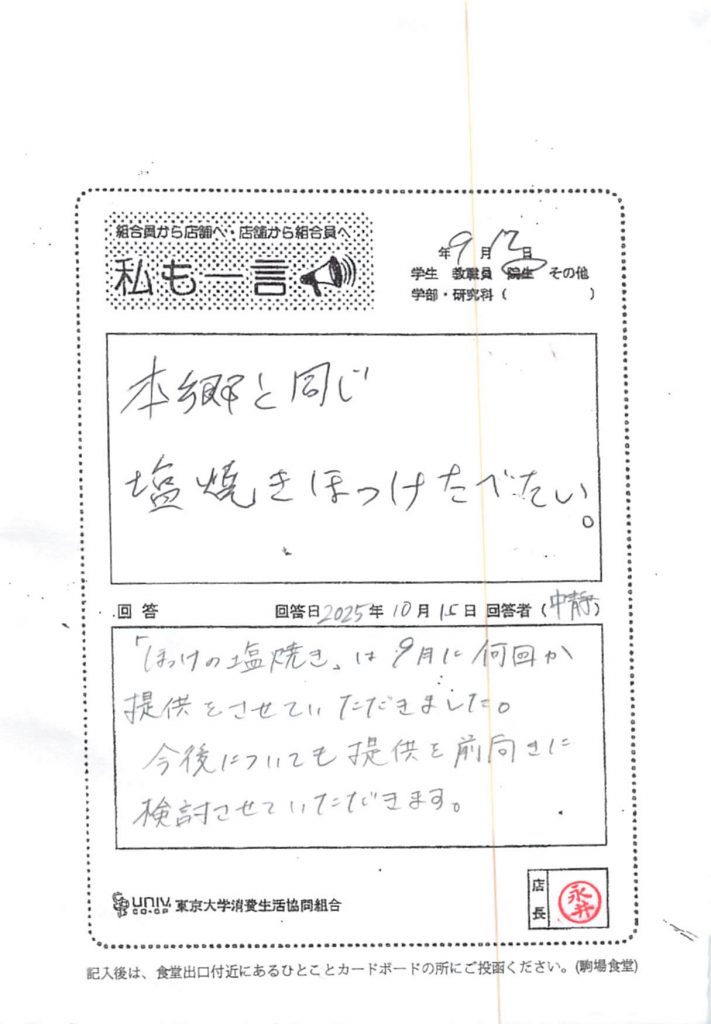 組合員から店舗へ・店舗から組合員へ
私も一言
年9月12日
学生 教職員 院生 その他
学部・研究科（ ）
本郷と同じ
塩焼きほっけたべたい。
回答 回答日2025年10月15日 回答者（中静）
「ほっけの塩焼き」は9月に何回か
提供をさせていただきました。
今後についても提供を前向きに
検討させていただきます。
UNIV. CO-OP 東京大学消費生活協同組合
店長 永井
記入後は、食堂出口付近にあるひとことカードボードの所にご投函ください。(駒場食堂)